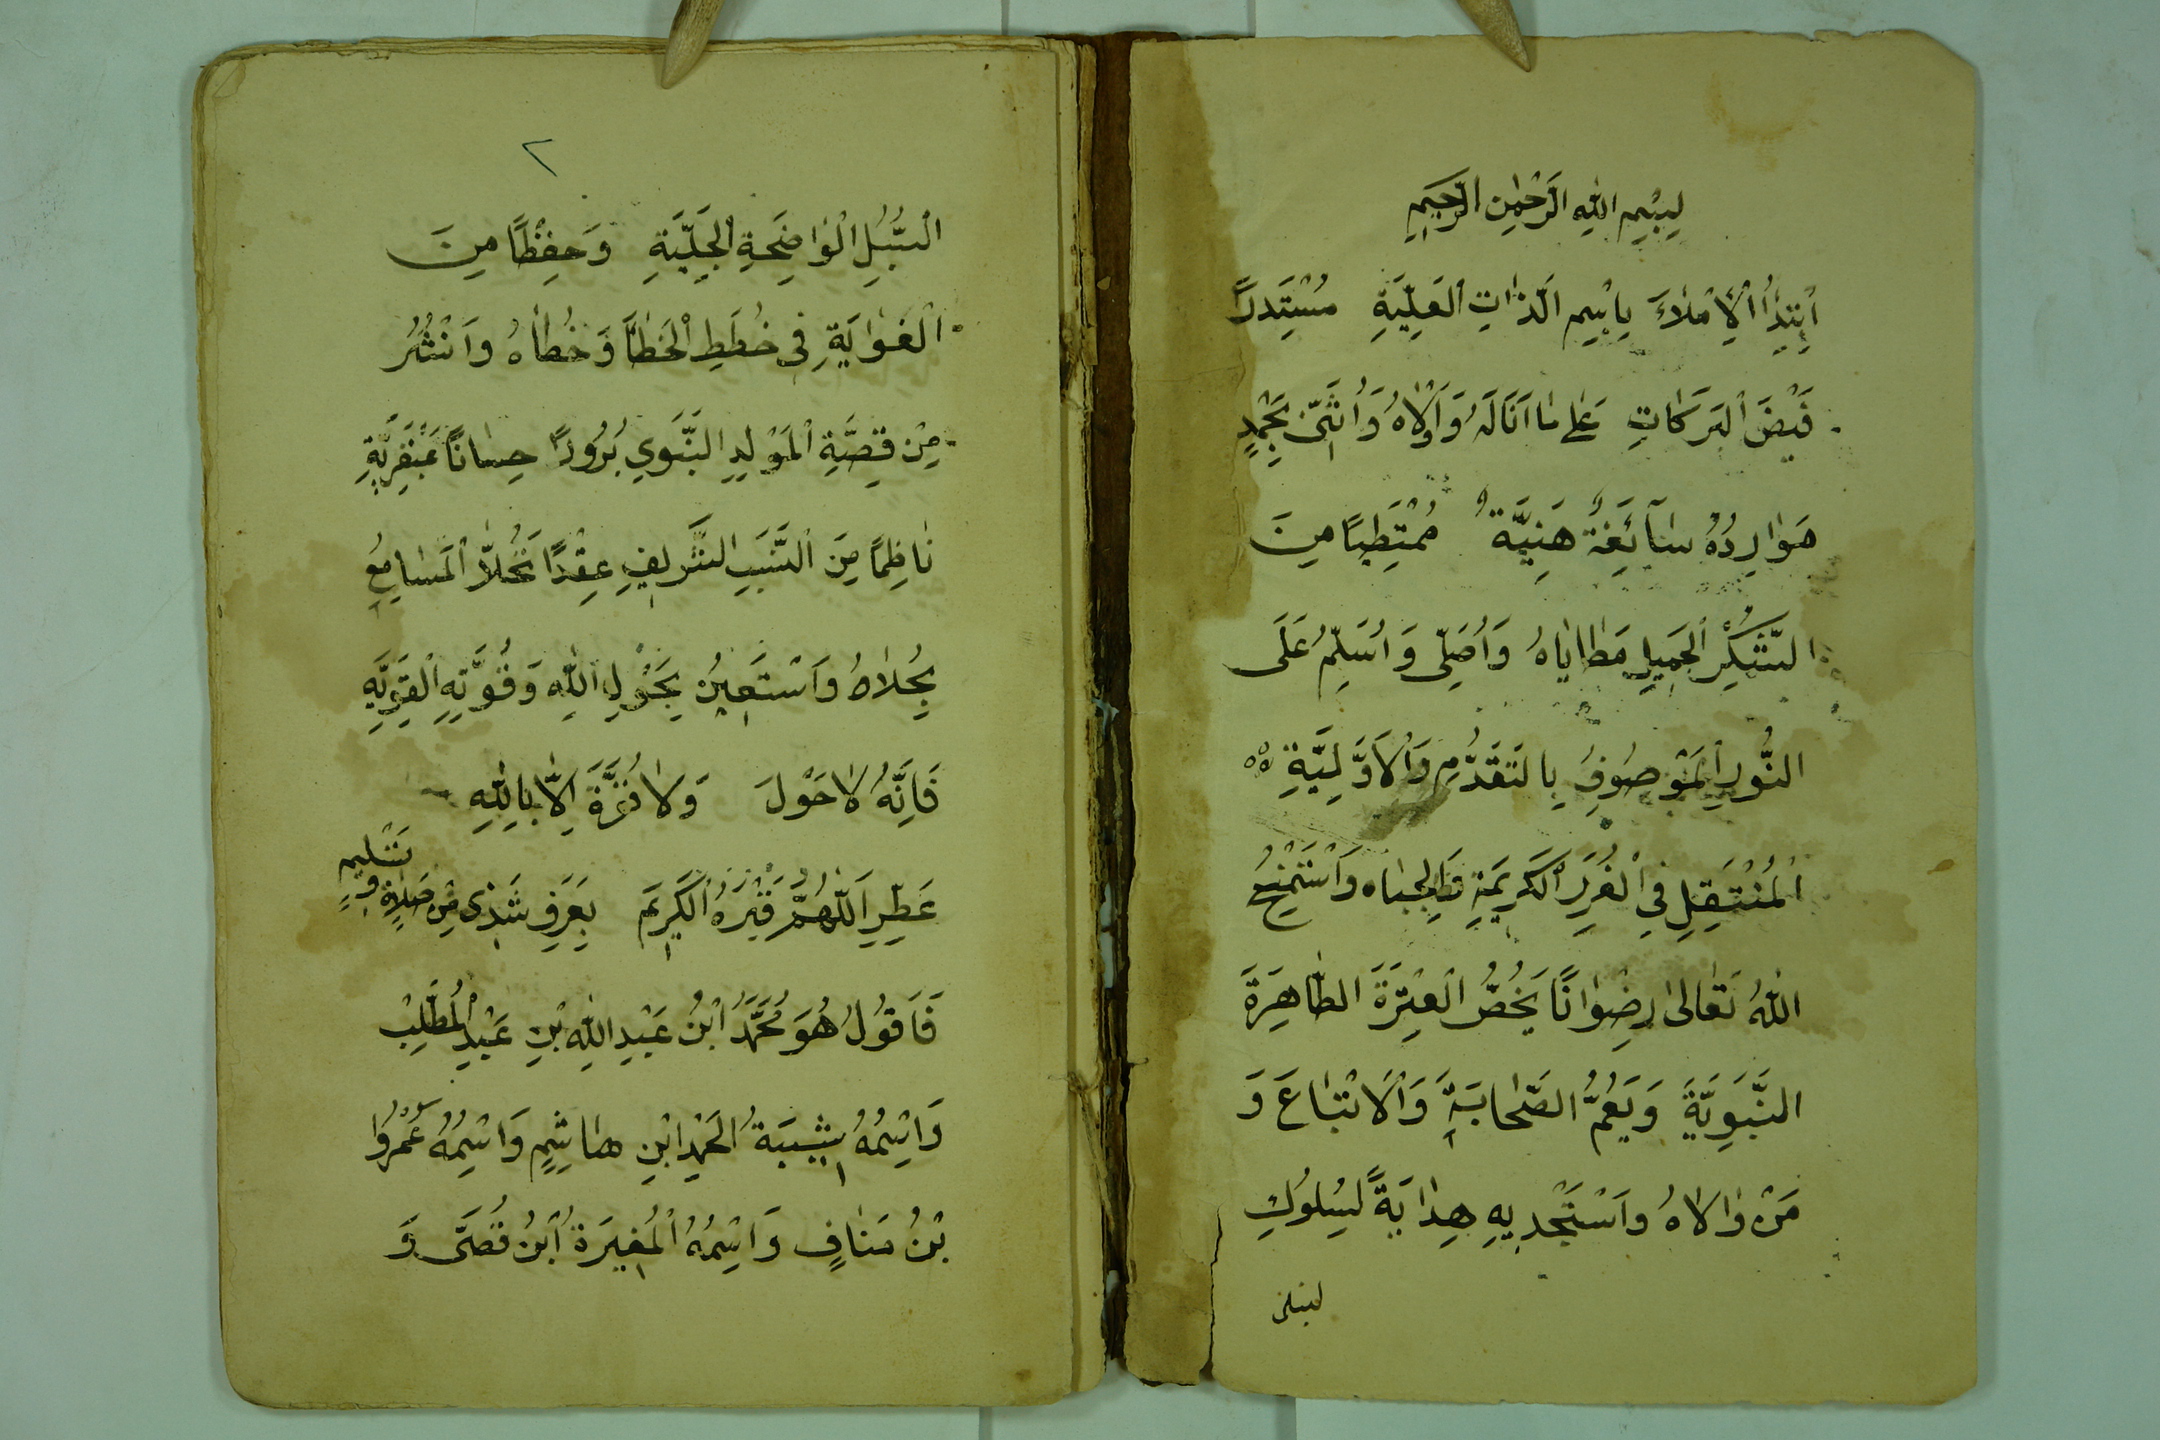 بِسْمِ اللهِ الرَّحْمٰنِ الرَّحِيمِ
اَبْتَدِأُ الْاِمْلَاءَ بِاسْمِ الذَّاتِ الْعَلِيَّةِ مُسْتَدِرًّا
فَيْضَ الْبَرَكَاتِ عَلٰى مَا اَنَالَهُ وَاَوْلَاهُ وَاُثَنِّى بِحَمْدٍ
مَوَارِدُهُ سَآئِغَةٌ هَنِيَّةٌ مُمْتَطِيًا مِنَ
الشُّكْرِ الْجَمِيلِ مَطَايَاهُ وَاُصَلِّى وَاُسَلِّمُ عَلَى
النُّورِ الْمَوْصُوفِ بِالتَّقَدُّمِ وَالْاَوَّلِيَّةِ
الْمُنْتَقِلِ فِي الْغُرَرِ الْكَرِيمَةِ وَالْجِبَاه وَاَسْتَمْنِحُ
اللهُ تَعَالٰى رِضْوَانًا يَخُصُّ الْعِتْرَةَ الطَّاهِرَةَ
النَّبَوِيَّةَ وَيَعُمُّ الصَّحَابَةَ وَالْاَتْبَاعَ وَ
مَنْ وَالَاهُ وَاَسْتَجْدِيهِ هِدَايَةً لِسُلُوكِ
لسبل
٢
السُّبُلِ الْوَاضِحَةِ الْجَلِيَّةِ وَحِفْظًا مِنَ
الْغَوَايَةِ فِى خُطَطِ الْخَطَأِ وَخُطَاهُ وَاَنْشُرُ
مِنْ قِصَّةِ الْمَوْلِدِ النَّبَوِي بُرُودًا حِسَانًا عَبْقَرِيَّةِ
نَاظِمًا مِنَ النَّسَبِ الشَّرِيفِ عِقْدًا تُحَلَّا الْمَسَامِعُ
بِحُلَاهُ وَاَسْتَعِينُ بِحَوْلِ اللهِ وَقُوَّتِهِ الْقَوِيَّهِ
فَاِنَّهُ لَا حَوْلَ وَلَا قُوَّةَ اِلَّا بِاللهِ
عَطِّرِ اَللّٰهُمَّ قَبْرَهُ الْكَرِيمَ بِعَرْفٍ شَذِىٍّ مِنْ صَلَاةٍ وَتَسْلِيمٍ
فَاَقُولُ هُوَ مُحَمَّدُ ابْنُ عَبْدِ اللهِ بْنِ عَبْدِ الْمُطَّلِبْ
وَاسْمُهُ شَيْبَةُ الْحَمْدِ ابْنِ هَاشِمٍ وَاسْمُهُ عَمْرُوا
بْنُ مَنَافٍ وَاسْمُهُ الْمُغِيرَةُ ابْنُ قُصَىَّ وَ